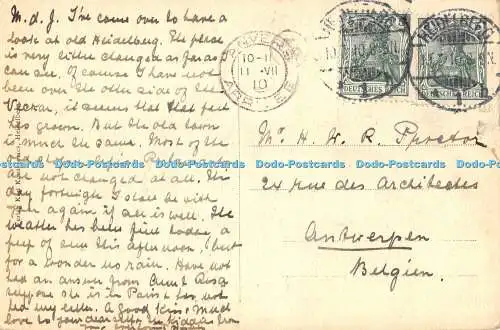 M. d. J. I've come over to have a
look at old Heidelberg. The place
is very little changed as far as I
can see. Of course I have not
been over the other side of the
Neckar, it seems that that part
has grown. But the old town
is much the same. Most of the
are not changed at all. This
day fortnight I shall be with
you again if all is well. The
weather has been fine today, a
peep of sun this afternoon, but
for a wonder no rain. Have not
had an answer from Aunt
suppose she is in Paris & has not
had my letter. A good kiss, much
love to your dear self & the kiddies from
ANVERS
10-11
11 VII
10
HEIDELBERG
DEUTSCHES REICH
HEIDELBERG
DEUTSCHES REICH
1
Mr. H. W. R. Proctor
24 rue des Architectes
Antwerpen
Belgien.
Dodo-Postcards Dodo-Postcards Dodo-Postcards Dodo-Postcards
Dodo-Postcards Dodo-Postcards Dodo-Postcards Dodo-Postcards
Dodo-Postcards Dodo-Postcards Dodo-Postcards Dodo-Postcards